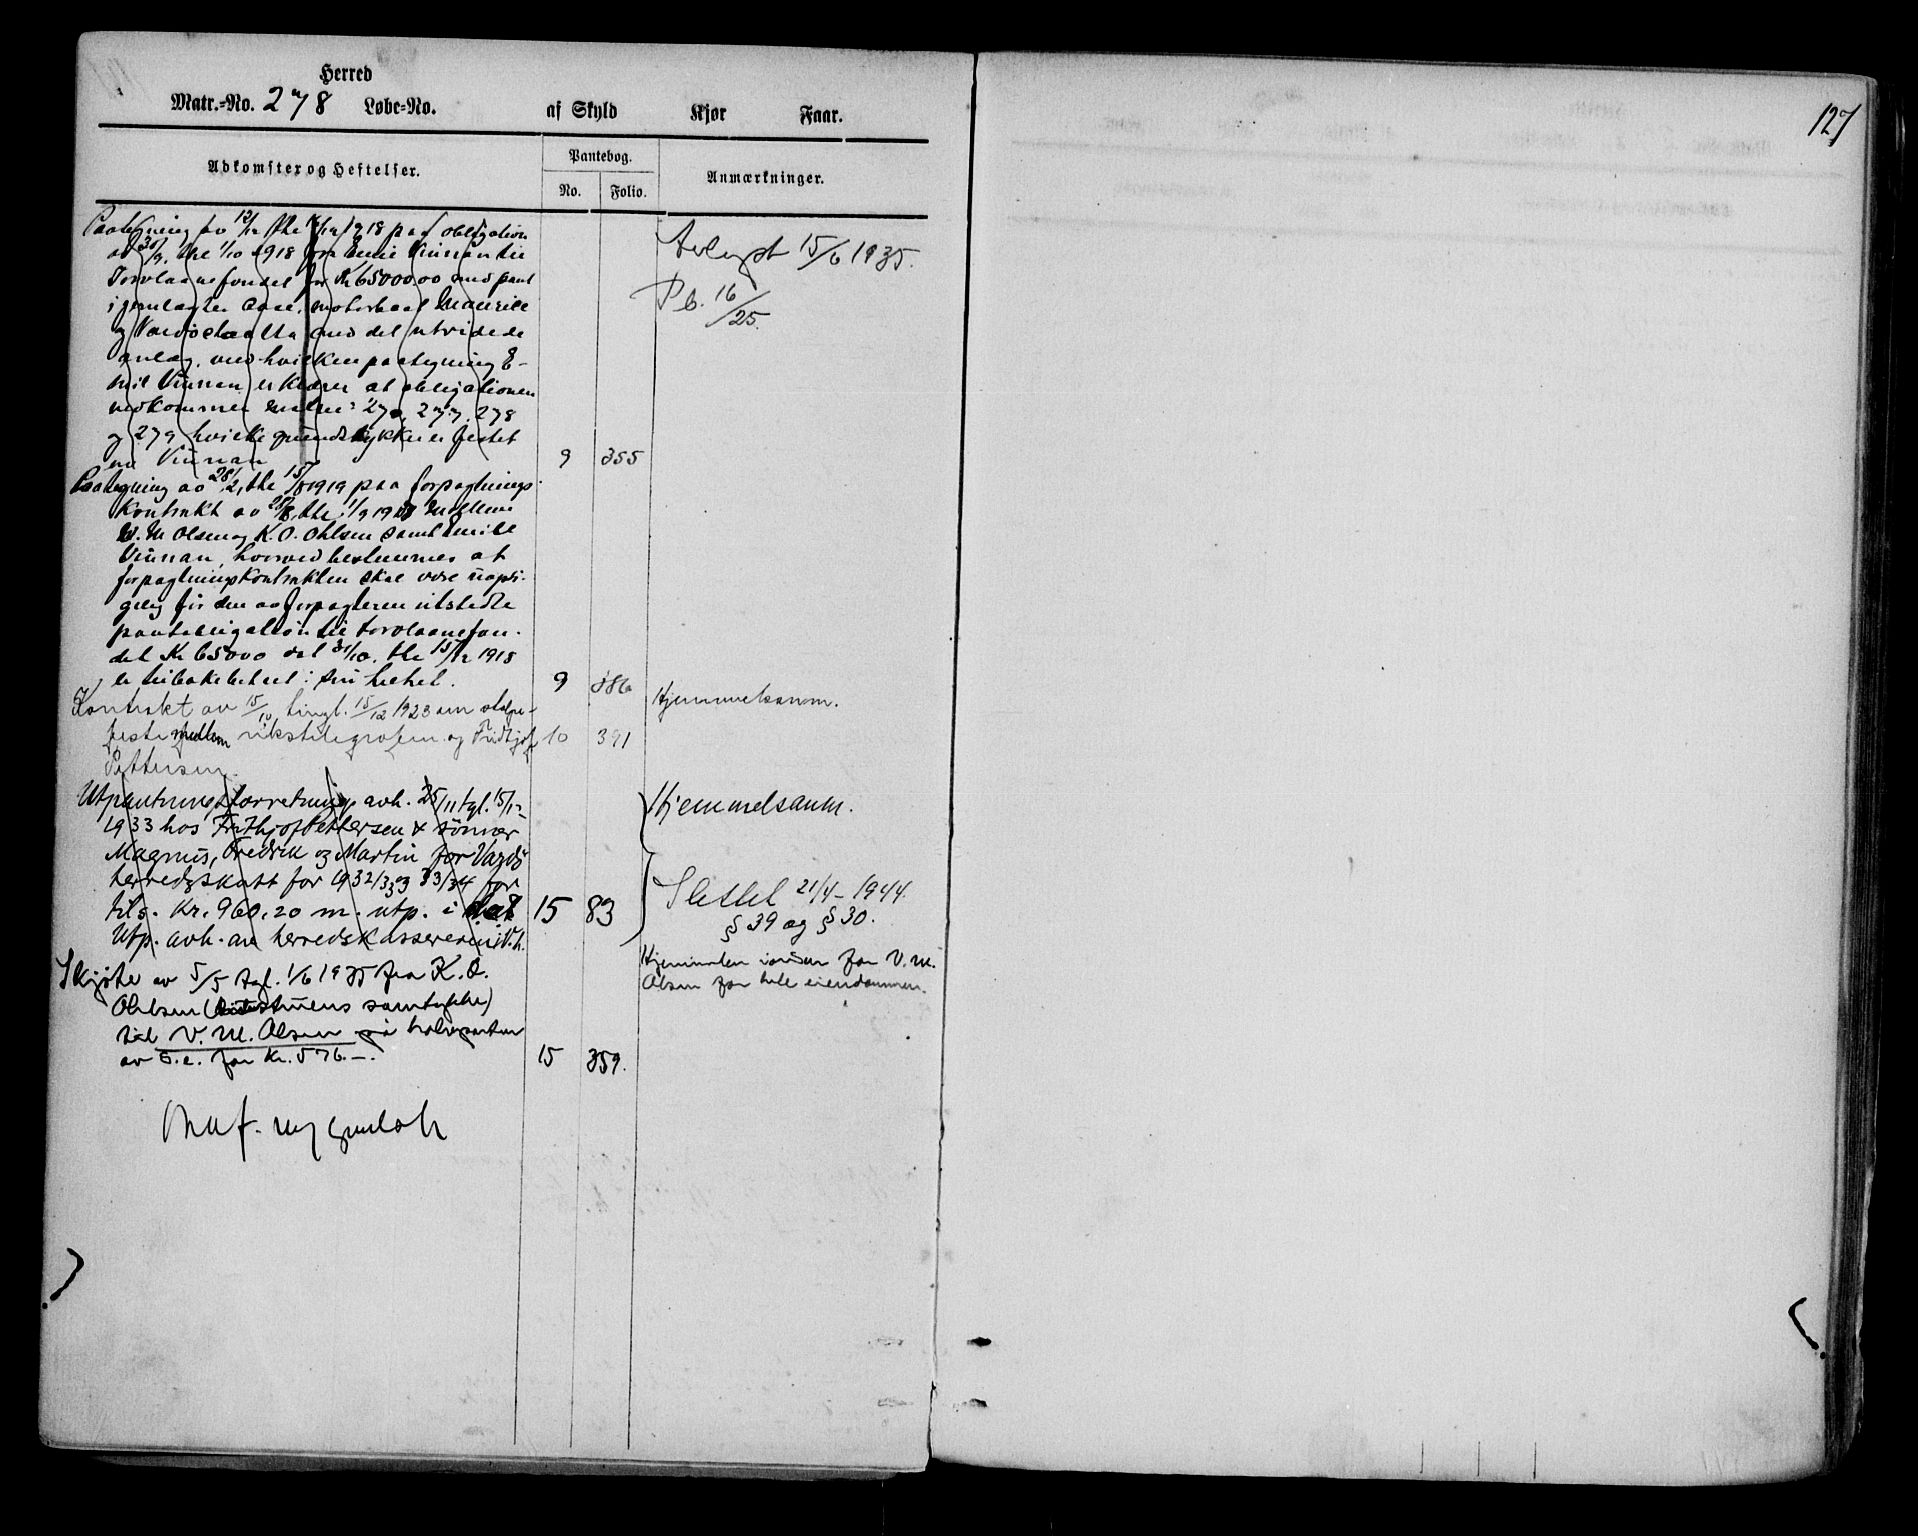 Herred
Matr.=No. 278 Løbe=No. af Skyld Kjør Faar.
127
Adkomster og Heftelser.
Pantebog.
No. Folio.
Anmærkninger.
Paategning av 12/12 thl 1918 paa obligation
av 30/9, thl 1/10 1918 fra Emil Vinnan til
Torvlaanefondet for Kr 65000.00 med pant
motorbaat
og Vardø med det utvidede
anlæg, ved hvilken paategning E-
mil Vinnan erklærer at obligationen
vedkommer matr: 277, 278
og 279 hvilke grundstykker er festet
av Vinnan
9 355
Avlyst 15/6 1935.
Pb. 16/25.
Paategning av 28/2, thl 15/8 1919 paa forpagtnings-
kontrakt av thl. 1/9 19 mellem
V. M Olsen og K. O. Ohlsen samt Emil
Vinnan, hvorved bestemmes at
forpagtningskontrakten skal være uopsi-
gelig før den av forpagteren utstedte
pantobligation til torvlaanefon-
det Kr 65000 dat 31/10. thl 15/12 1918
er tilbakebetalt i sin helhet.
9 386
Kontrakt av 15/10, tingl. 15/12 1923 om stolpe-
feste mellem rikstelegrafen og Fridtjof
Pettersen.
10 391
Hjemmelsanm.
Utpantningsforretning avh. 25/11 tgl. 15/12-
1933 hos Frithjof Pettersen & sønner
Magnus, Fredrik og Martin for Vardø
herredsskatt for 1932/33 og 33/34 for
tils. Kr. 960.20 m. utp. i
Utp. avh. av herredskassereren i V.h.
15 83
Hjemmelsanm.
Slettet 21/4-1944.
§ 39 og § 30.
Skjøte av 5/5 tgl. 1/6 1935 fra K. O.
Ohlsen (hustruens samtykke)
til V. M. Olsen på halvparten
av d.e. for Kr. 576.-.
15 359.
Hjemmelen iorden for V. M.
Olsen for hele eiendommen.